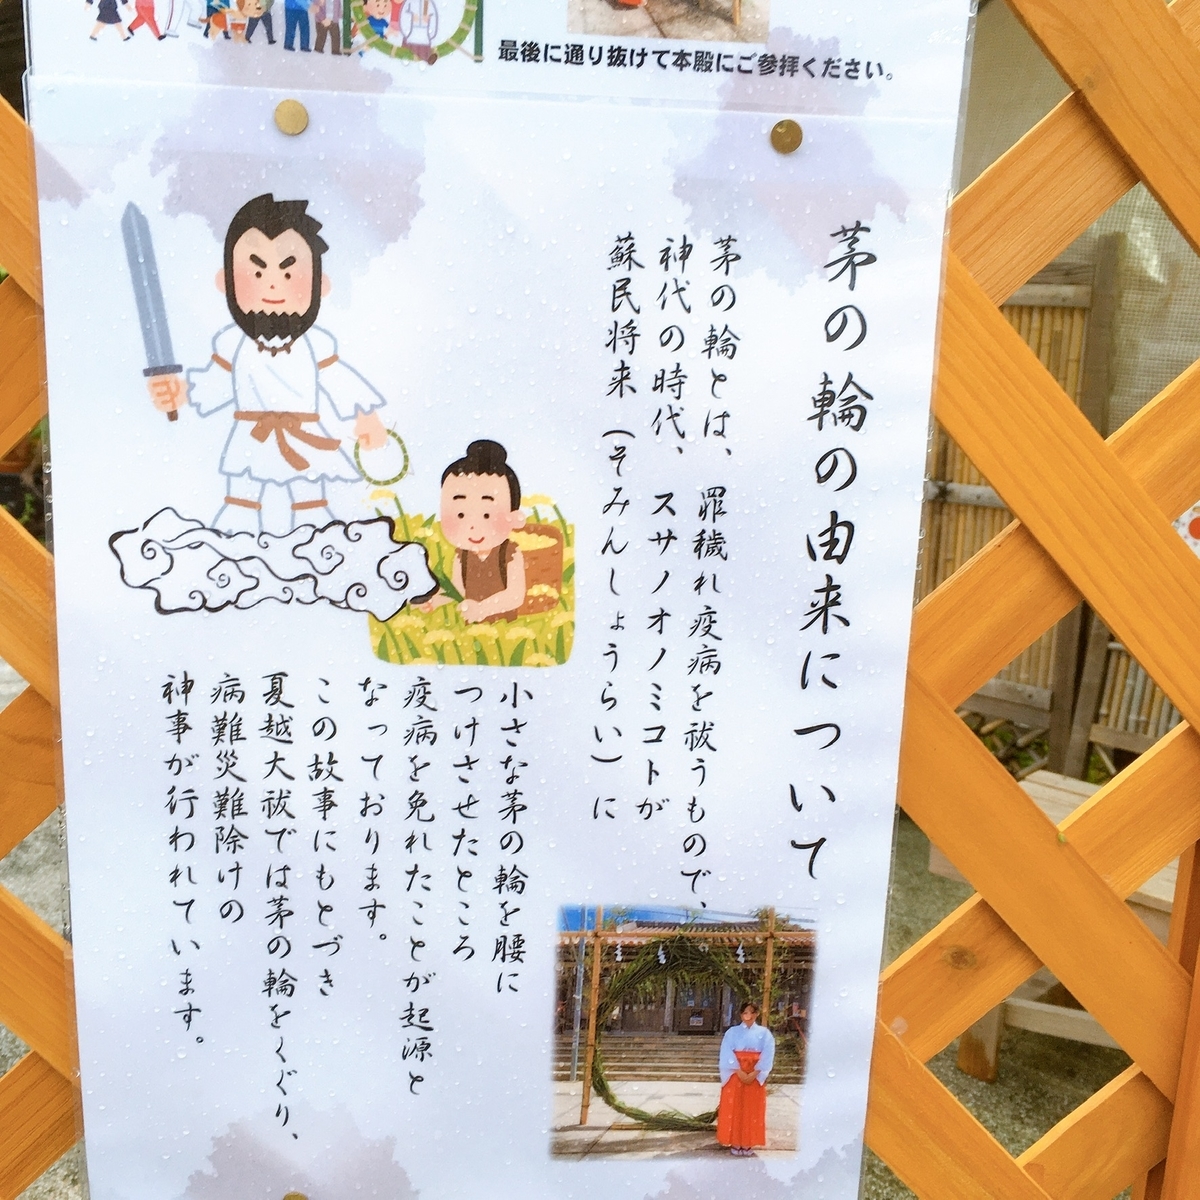 最後に通り抜けて本殿にご参拝ください。
茅の輪の由来について
茅の輪とは、罪穢れ疫病を祓うもので、
神代の時代、スサノオノミコトが
蘇民将来(そみんしょうらい)に
小さな茅の輪を腰に
つけさせたところ
疫病を免れたことが起源と
なっております。
この故事にもとづき
夏越大祓では茅の輪をくぐり、
病難災難除けの
神事が行われています。